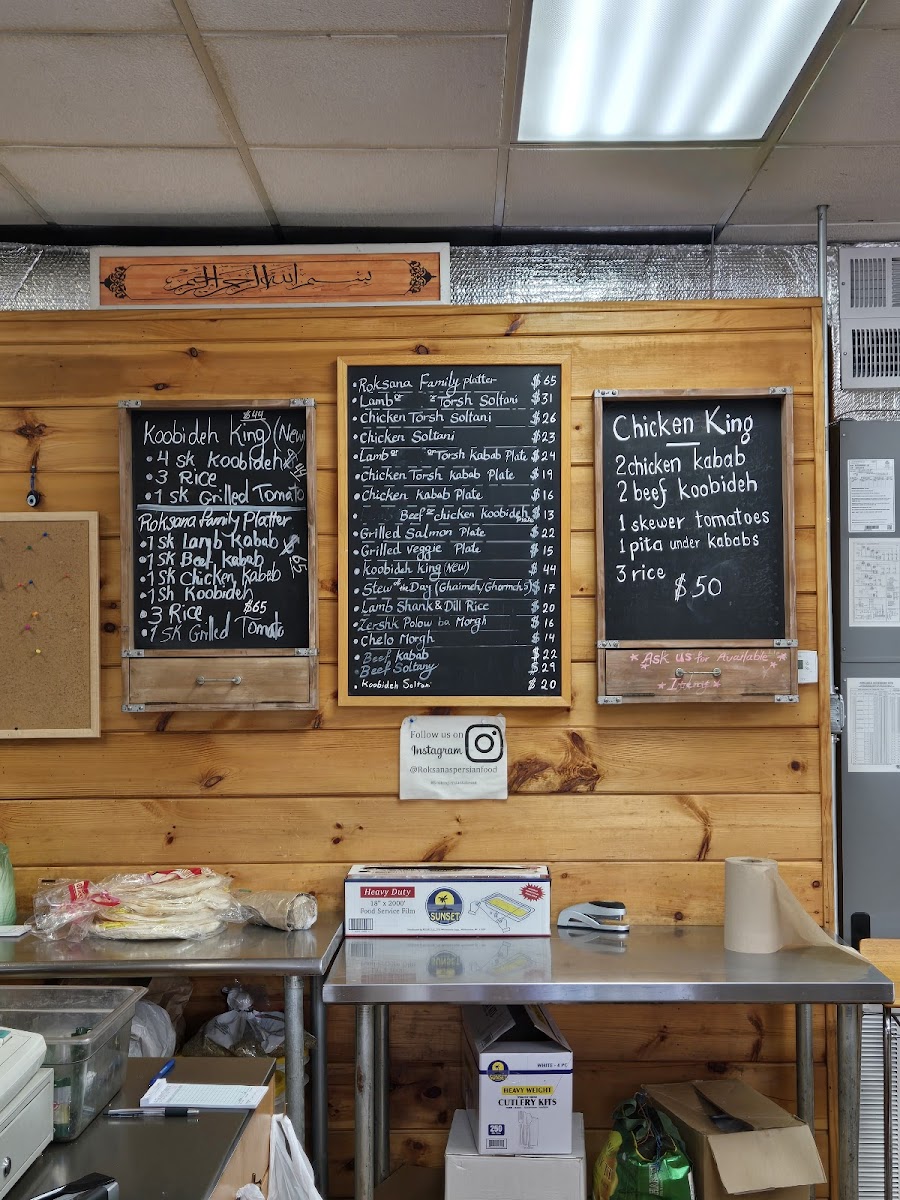 بسم الله الرحمن الرحيم
$44
Koobideh King (New)
• 4 sk Koobideh $44
• 3 Rice
• 1 sk Grilled Tomato
Roksana Family Platter
• 1 sk Lamb Kabab $65
• 1 sk Beef Kabab
• 1 sk Chicken Kabeb
• 1sk Koobideh
• 3 Rice $65
• 1 sk Grilled Tomato
• Roksana Family platter $65
• Lamb or Torsh Soltani $31
• Chicken Torsh Soltani $26
• Chicken Soltani $23
• Lamb or Torsh Kabab Plate $24
• Chicken Torsh Kabab Plate $19
• Chicken Kabab Plate $16
• Beef or chicken Koobideh Plate $13
• Grilled Salmon Plate $22
• Grilled veggie Plate $15
• Koobideh King (NEW) $44
• Stew of the Day (Ghaimeh/Ghormeh S) $17
• Lamb Shank & Dill Rice $20
• Zershk Polow ba Morgh $16
• Chelo Morgh $14
• Beef Kabab $22
• Beef Soltany $29
• Koobideh Soltani $20
Chicken King
2 chicken kabab
2 beef koobideh
1 skewer tomatoes
1 pita under kababs
3 rice
$50
* Ask us for Available *
* Items *
Follow us on
Instagram
@Roksanaspersianfood
Heavy Duty
18" x 2000'
Food Service Film
SUNSET
WHITE - 6 PC
HEAVY WEIGHT
CUTLERY KITS
250